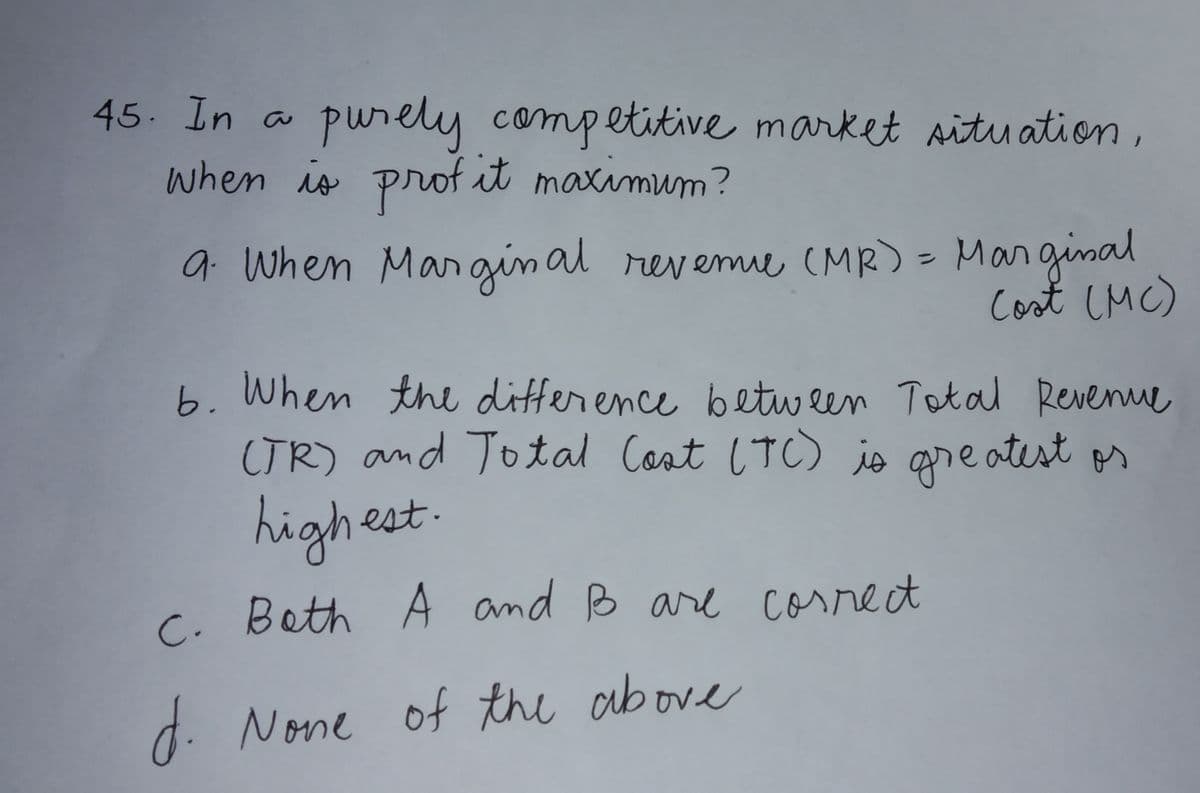 45. In a purely competitive market situation,
when is profit maximum?
a. When Marginal revenue (MR) = Marginal
Cost (MC)
b. When the difference between Total Revenue
(TR) and Total Cost (TC) is greatest or
highest.
c. Both A and B are correct
d. None of the above